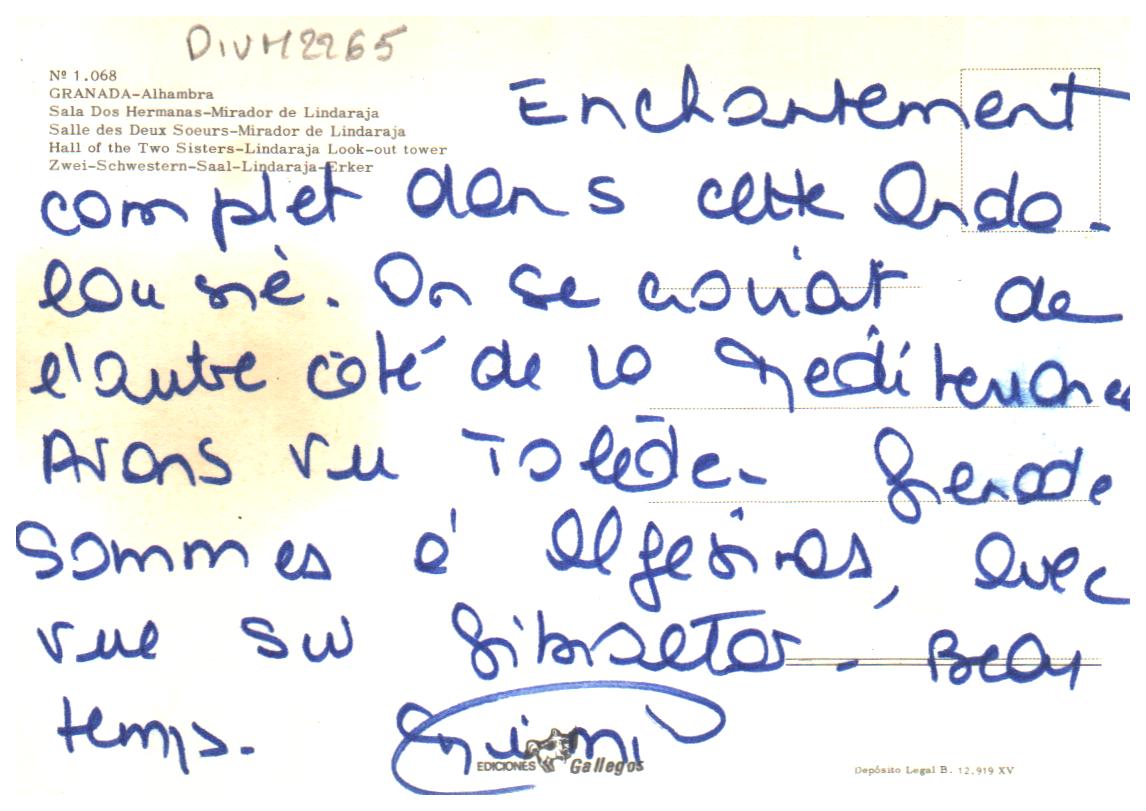 DIVM2265
Nº 1.068
GRANADA-Alhambra
Sala Dos Hermanas-Mirador de Lindaraja
Salle des Deux Soeurs-Mirador de Lindaraja
Hall of the Two Sisters-Lindaraja Look-out tower
Zwei-Schwestern-Saal-Lindaraja-Erker
Enchantement
complet dans cette Anda-
lousie. On se croirait de
l'autre côté de la Méditerranée
Avons vu Tolède - Grenade
sommes à Algésiras, avec
vue sur Gibraltar - Beau
temps.
EDICIONES Gallegos
Depósito Legal B. 12.919 XV